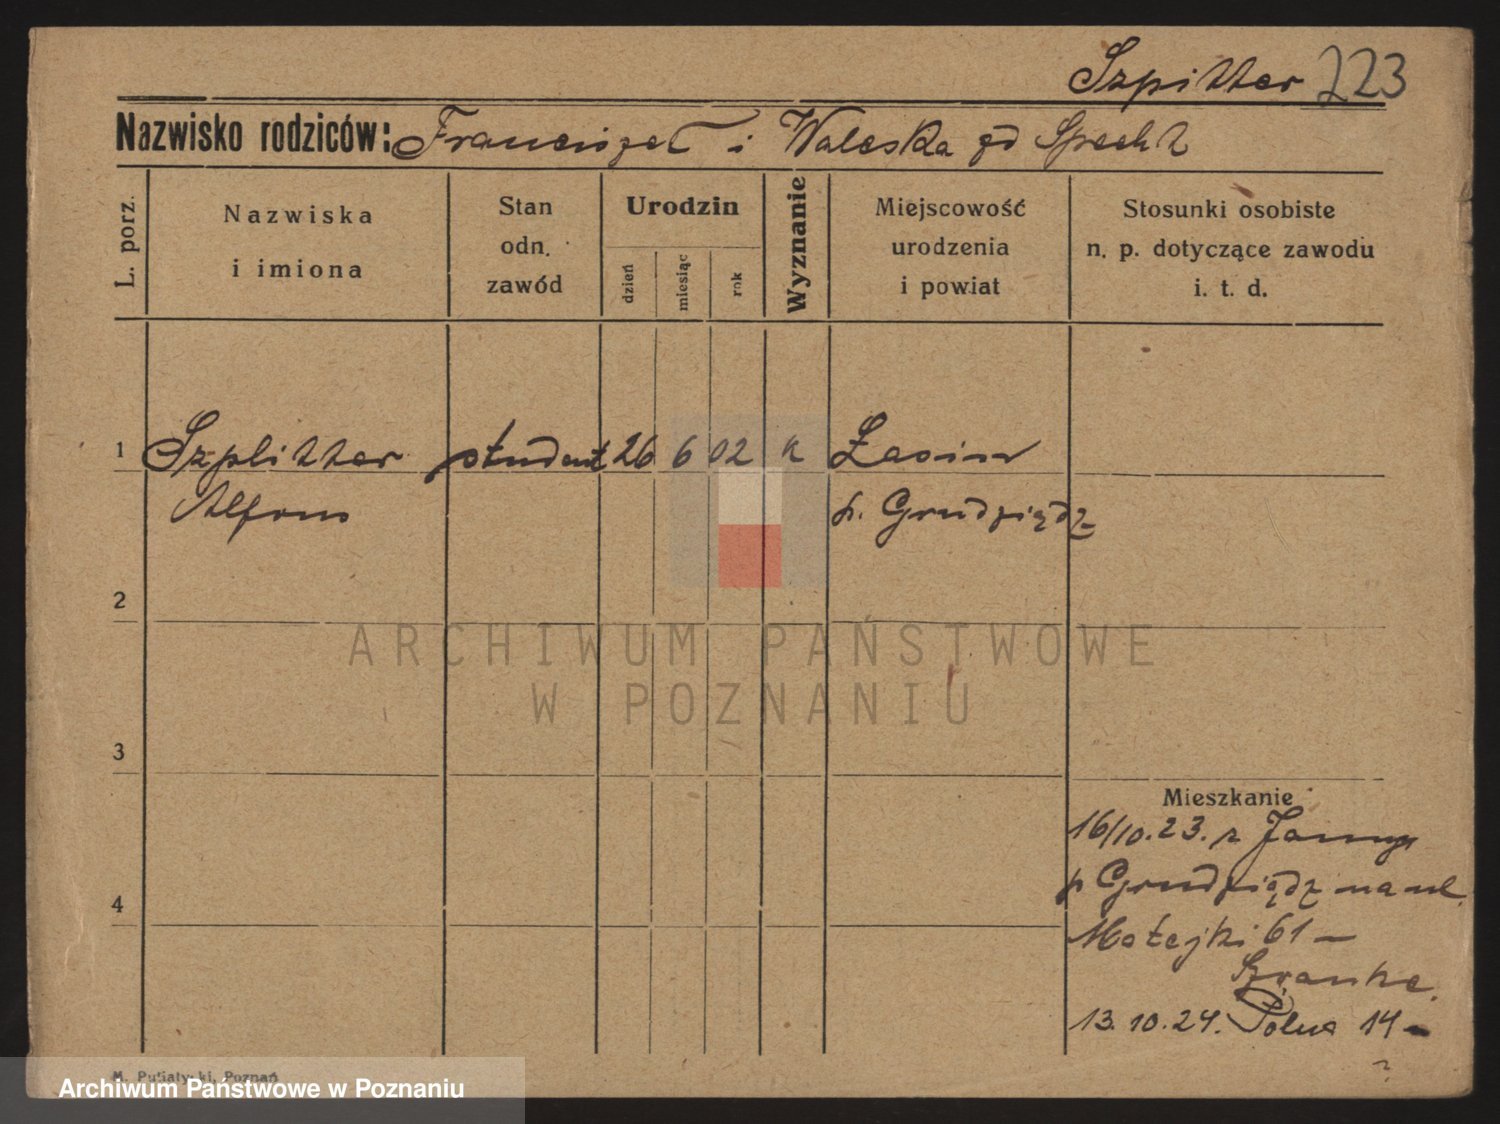 Szpitter 223
Nazwisko rodziców: Franciszek i Waleska zd Specht
L. porz.
Nazwiska
i imiona
Stan
odn.
zawód
Urodzin
dzień
miesiąc
rok
Wyznanie
Miejscowość
urodzenia
i powiat
Stosunki osobiste
n. p. dotyczące zawodu
i. t. d.
1 Szplitter student 26 6 02 k Łasin
Alfons p. Grudziądz
2
ARCHIWUM PAŃSTWOWE
W POZNANIU
3
Mieszkanie
16/10.23. z
p Grudziądz na ul.
4
Matejki 61 –
13.10.24. Polna 14 –
?
Poznań
Archiwum Państwowe w Poznaniu